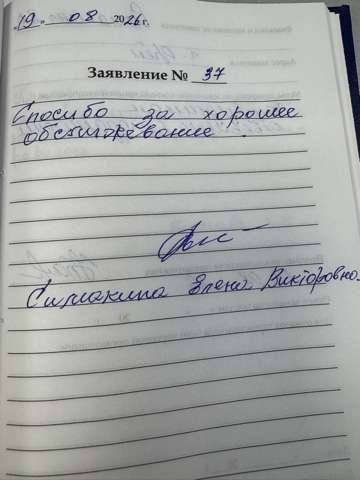 „19" 08 2026 г.
Заявление № 37
Спосибо за хорошее
обслуживание.
Елена Викторовна.